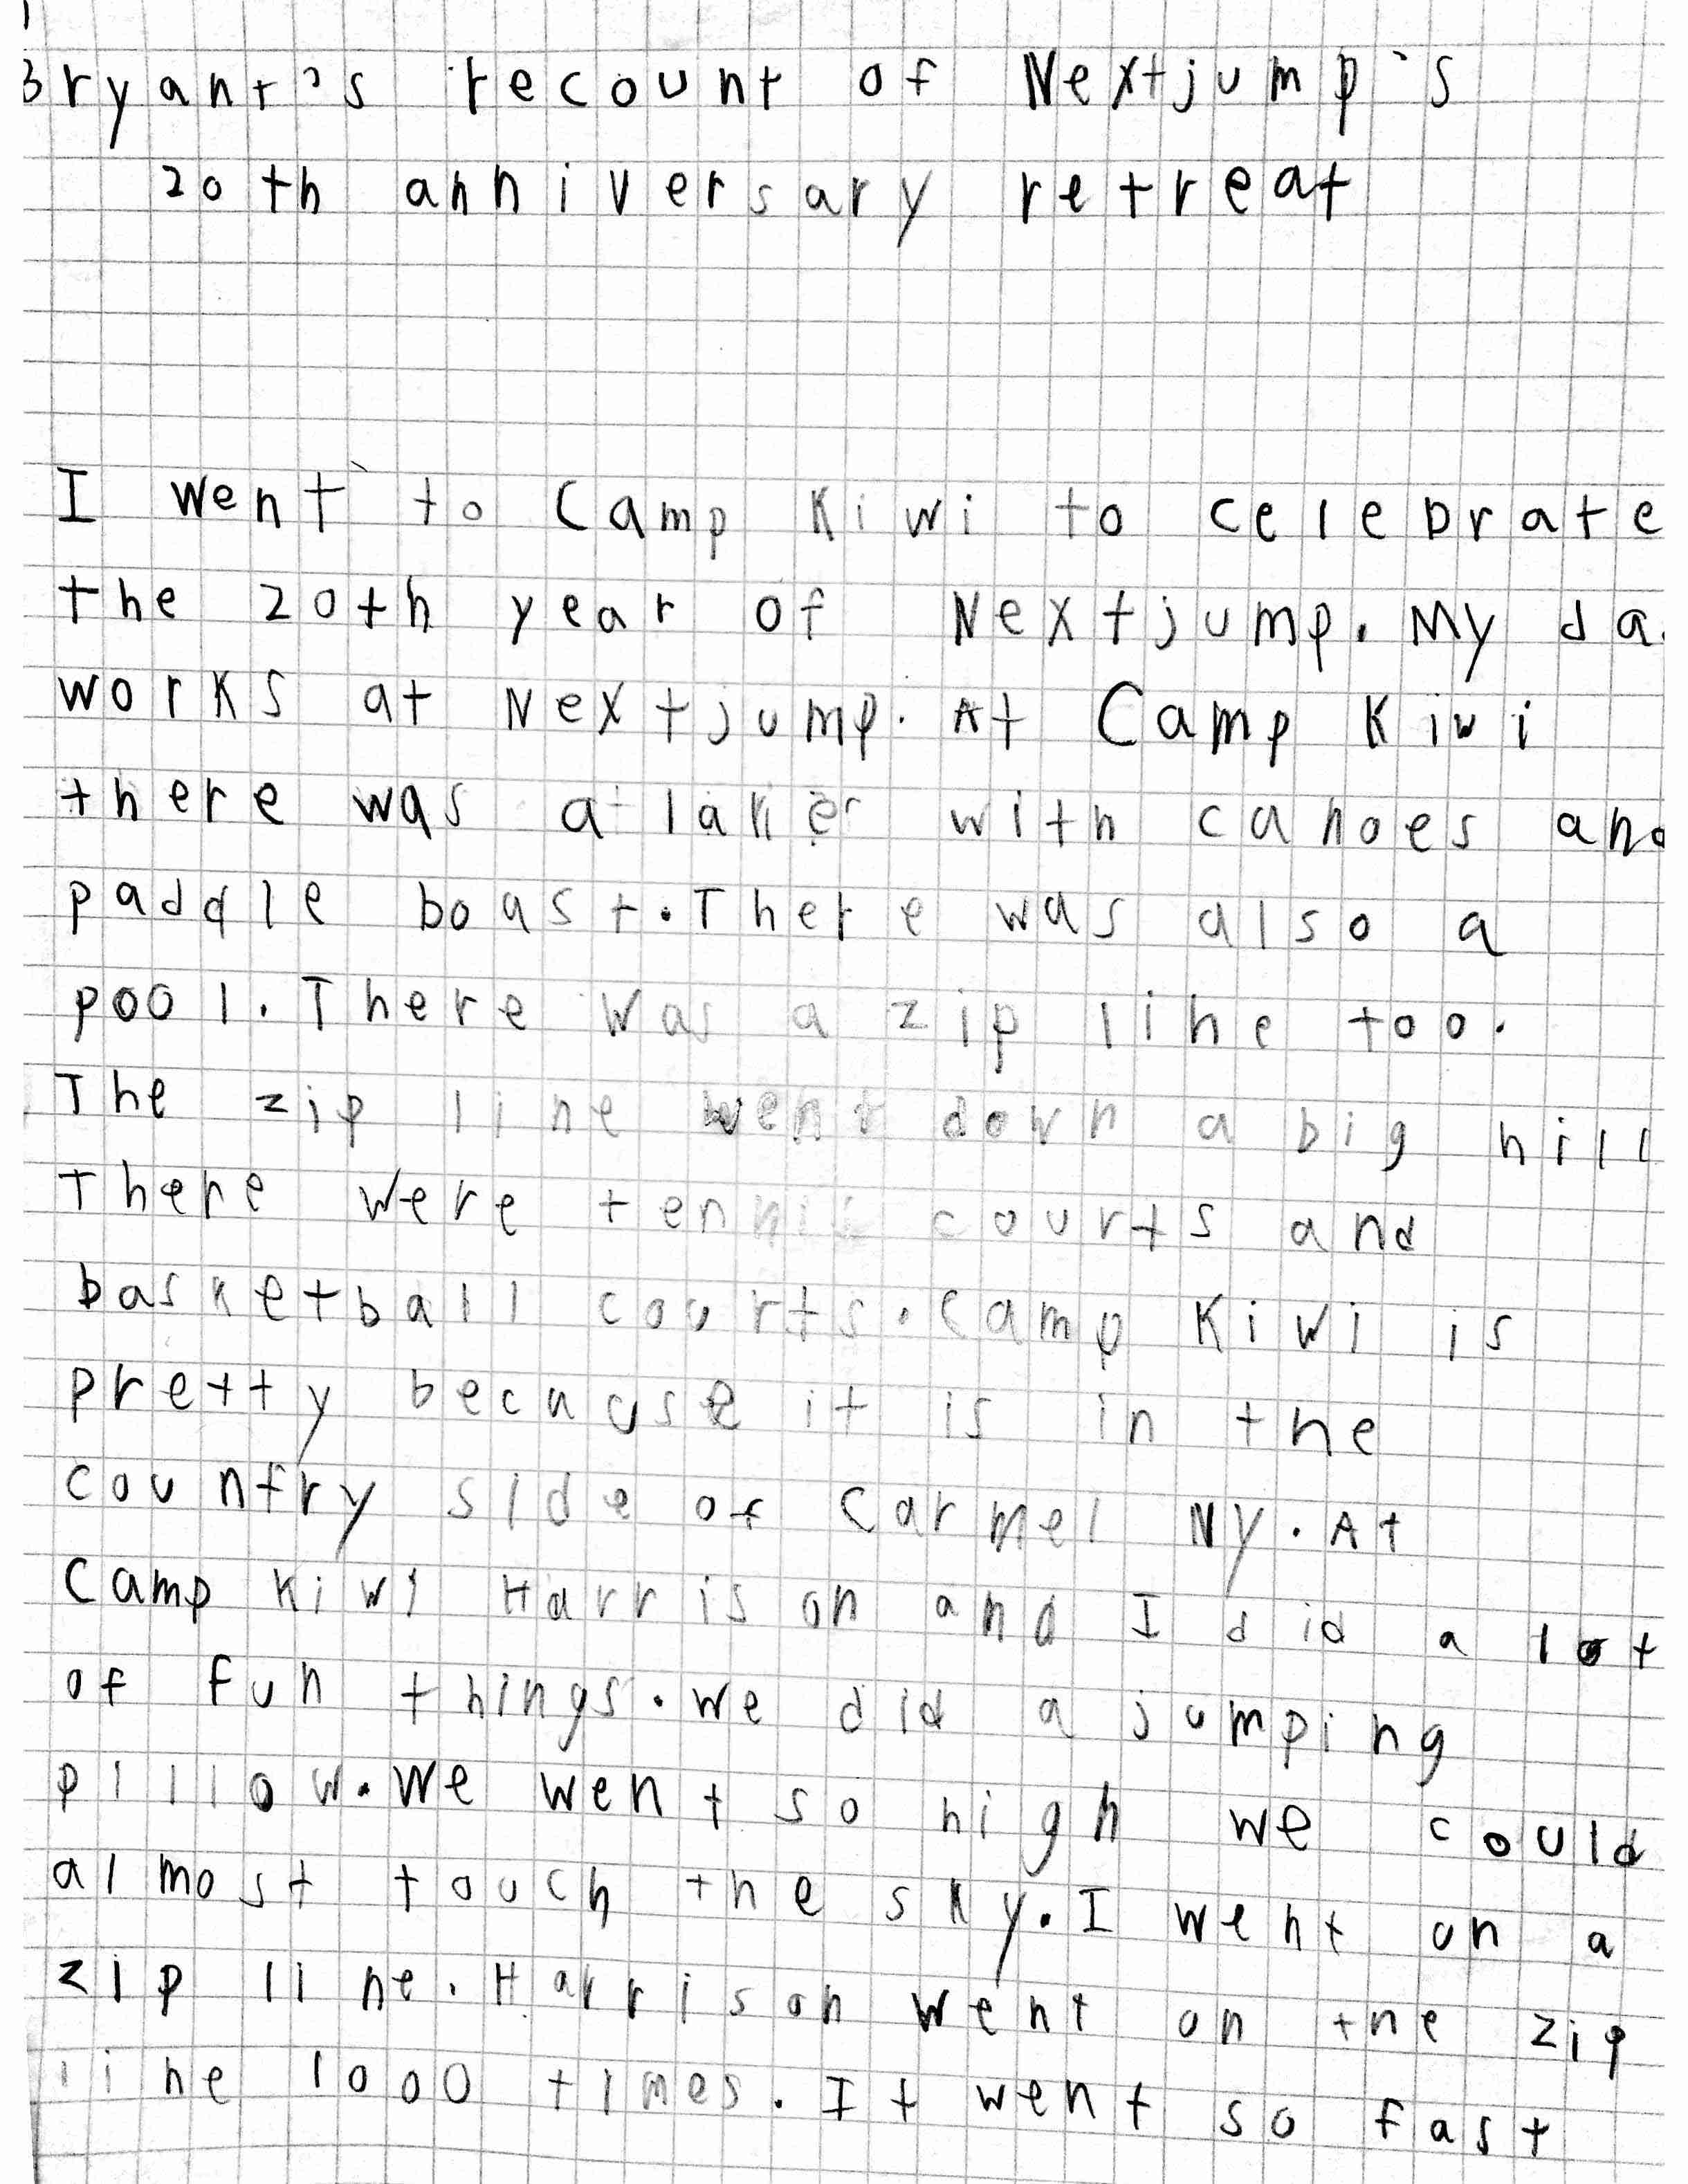 Bryant's recount of Nextjump's
20th anniversary retreat
I went to Camp Kiwi to celebrate
the 20th year of Nextjump. My da
works at Nextjump. At Camp Kiwi
there was a lake with canoes and
paddle boast. There was also a
pool. There was a zip line too.
The zip line went down a big hill
There were tennis courts and
basketball courts. Camp Kiwi is
pretty because it is in the
country side of Carmel NY. At
Camp Kiwi Harrison and I did a lot
of fun things. We did a jumping
pillow. We went so high we could
almost touch the sky. I went on a
zip line. Harrison went on the zip
line 1000 times. It went so fast